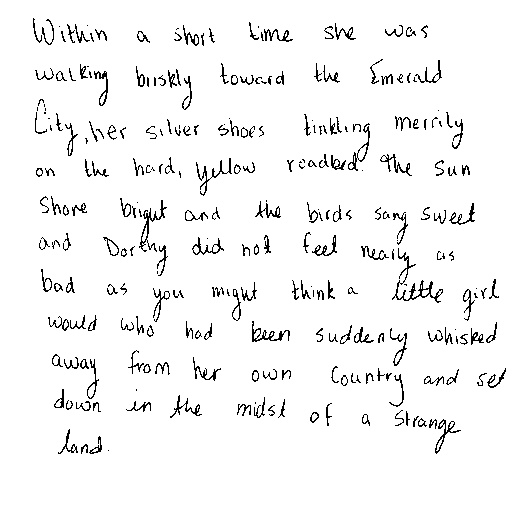 Within a short time she was
walking briskly toward the Emerald
City, her silver shoes tinkling merrily
on the hard, yellow roadbed. The sun
shone bright and the birds sang sweet
and Dorthy did not feel nearly as
bad as you might think a little girl
would who had been suddenly whisked
away from her own Country and set
down in the midst of a strange
land.